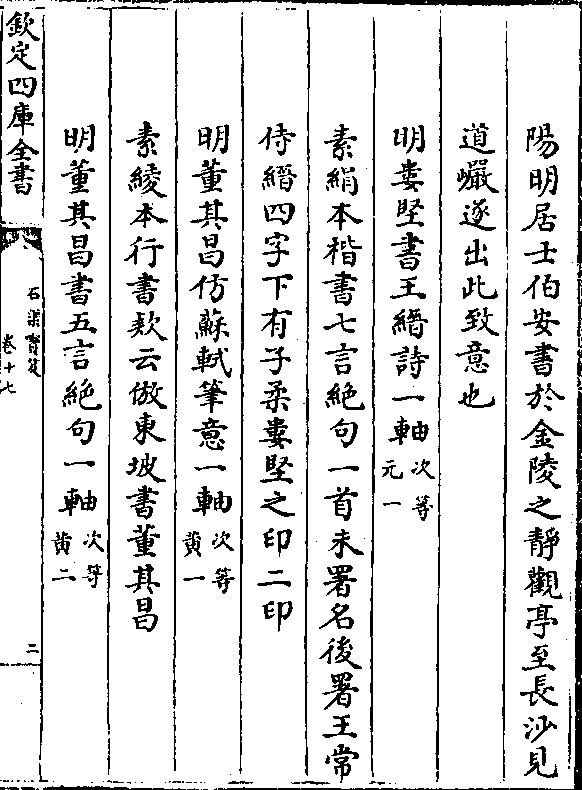 陽明居士伯安書於金陵之靜觀亭至長沙見
道巖遂出此致意也
明婁堅書王縉詩一軸次等元一
素絹本楷書七言絶句一首未署名後署王常
侍縉四字下有子柔婁堅之印二印
明董其昌仿蘇軾筆意一軸次等黄一
素綾本行書欵云倣東坡書董其昌
明董其昌書五言絶句一軸次等黄二
欽定四庫全書
石渠寳笈
卷十七
二